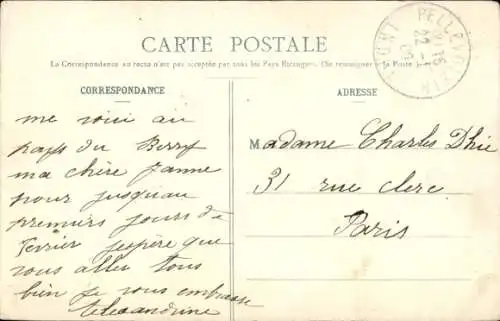 CARTE POSTALE
La Correspondance au recto n'est pas acceptée par tous les Pays Etrangers. (Se renseigner à la Poste)
CORRESPONDANCE
ADRESSE
PELLEVOISIN
22
me voici au
pays du Berry
ma chère Jeanne
pour jusquau
premiers jours de
Fevrier jespère que
vous allez tous
bien je vous embrasse
Alexandrine
Madame Charles Dhie
31 rue clerc
Paris